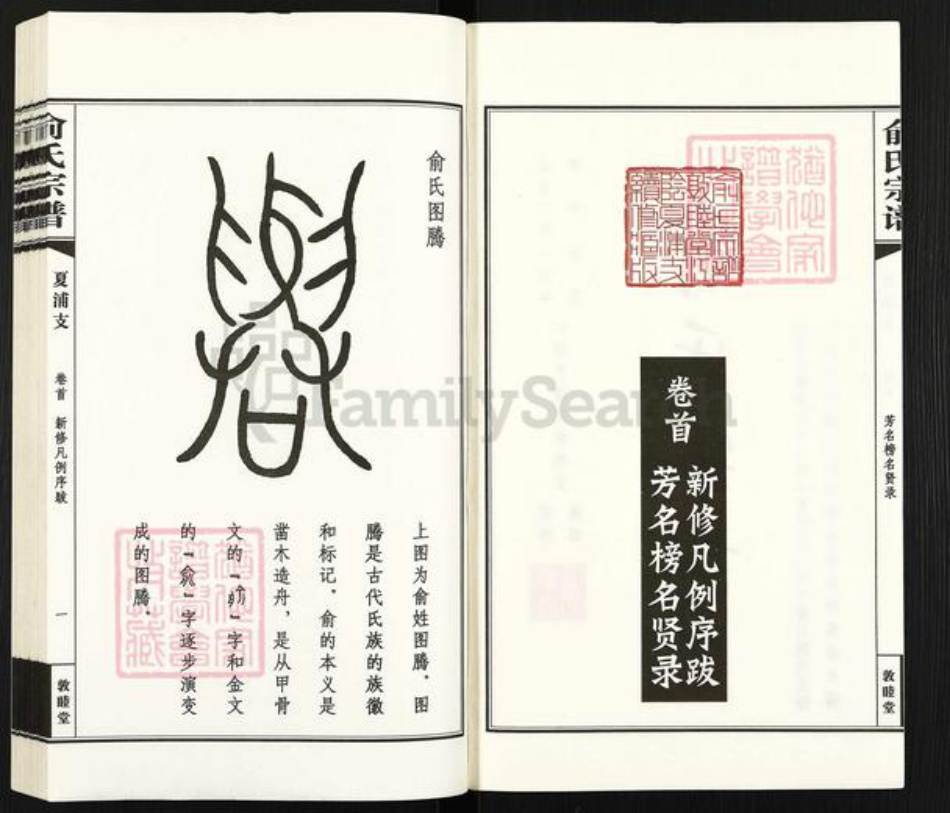 俞氏宗谱
卷首
新修凡例序跋
芳名榜名贤录
俞氏宗谱
敦睦堂江
阴夏浦支
续修源版
芳名榜名贤录
敦睦堂
俞氏图腾
上图为俞姓图腾。图
腾是古代氏族的族徽
和标记。俞的本义是
凿木造舟,是从甲骨
文的“ ”字和金文
的“ ”字逐步演变
成的图腾。
俞氏宗谱
夏浦支
卷首 新修凡例序跋
一
敦睦堂
FamilySearch